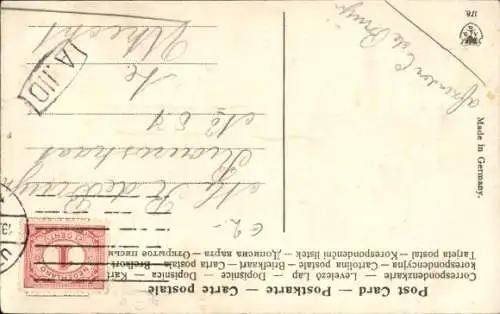 Post Card — Postkarte — Carte postale
Correspondenzkarte — Levelező Lap — Dopisnice — Dopisnica — Kart
korespondencyjna — Cartolina postale — Briefkaart — Carta postala — Brefkort
Tarjeta postal — Korespondenční lístek — Дописна карта — Открытое письмо
NEDERLAND
1
CENT
de Bruyn
No 57
te
Utrecht
A.IIO
afzender C de Bruijn
€2-
Made in Germany.
176.